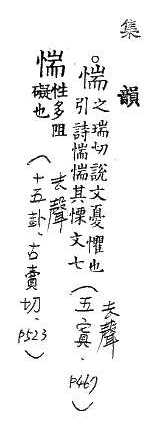 集韻
○惴
之瑞切說文憂懼也
引詩惴惴其慄文七
去聲
(五寘.P467)
惴
性多阻
礙也
去聲
(十五卦.古賣切.P523)